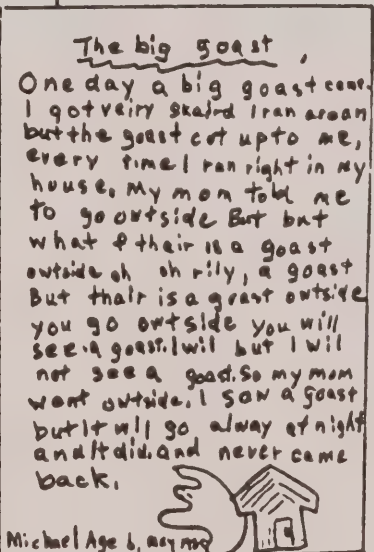 The big goast
One day a big goast came.
I got veiry skaird I ran aroan
but the goast cot up to me,
every time I ran right in my
house. My mom told me
to go owtside But but
what f thair is a goast
owtside oh oh rily, a goast
But thair is a goast owtside
you go owtside you will
see a goast. I wil but I wil
not see a goast. So my mom
went owtside. I saw a goast
but It will go alway at night
and It did. and never came
back.
Michael Age 6,